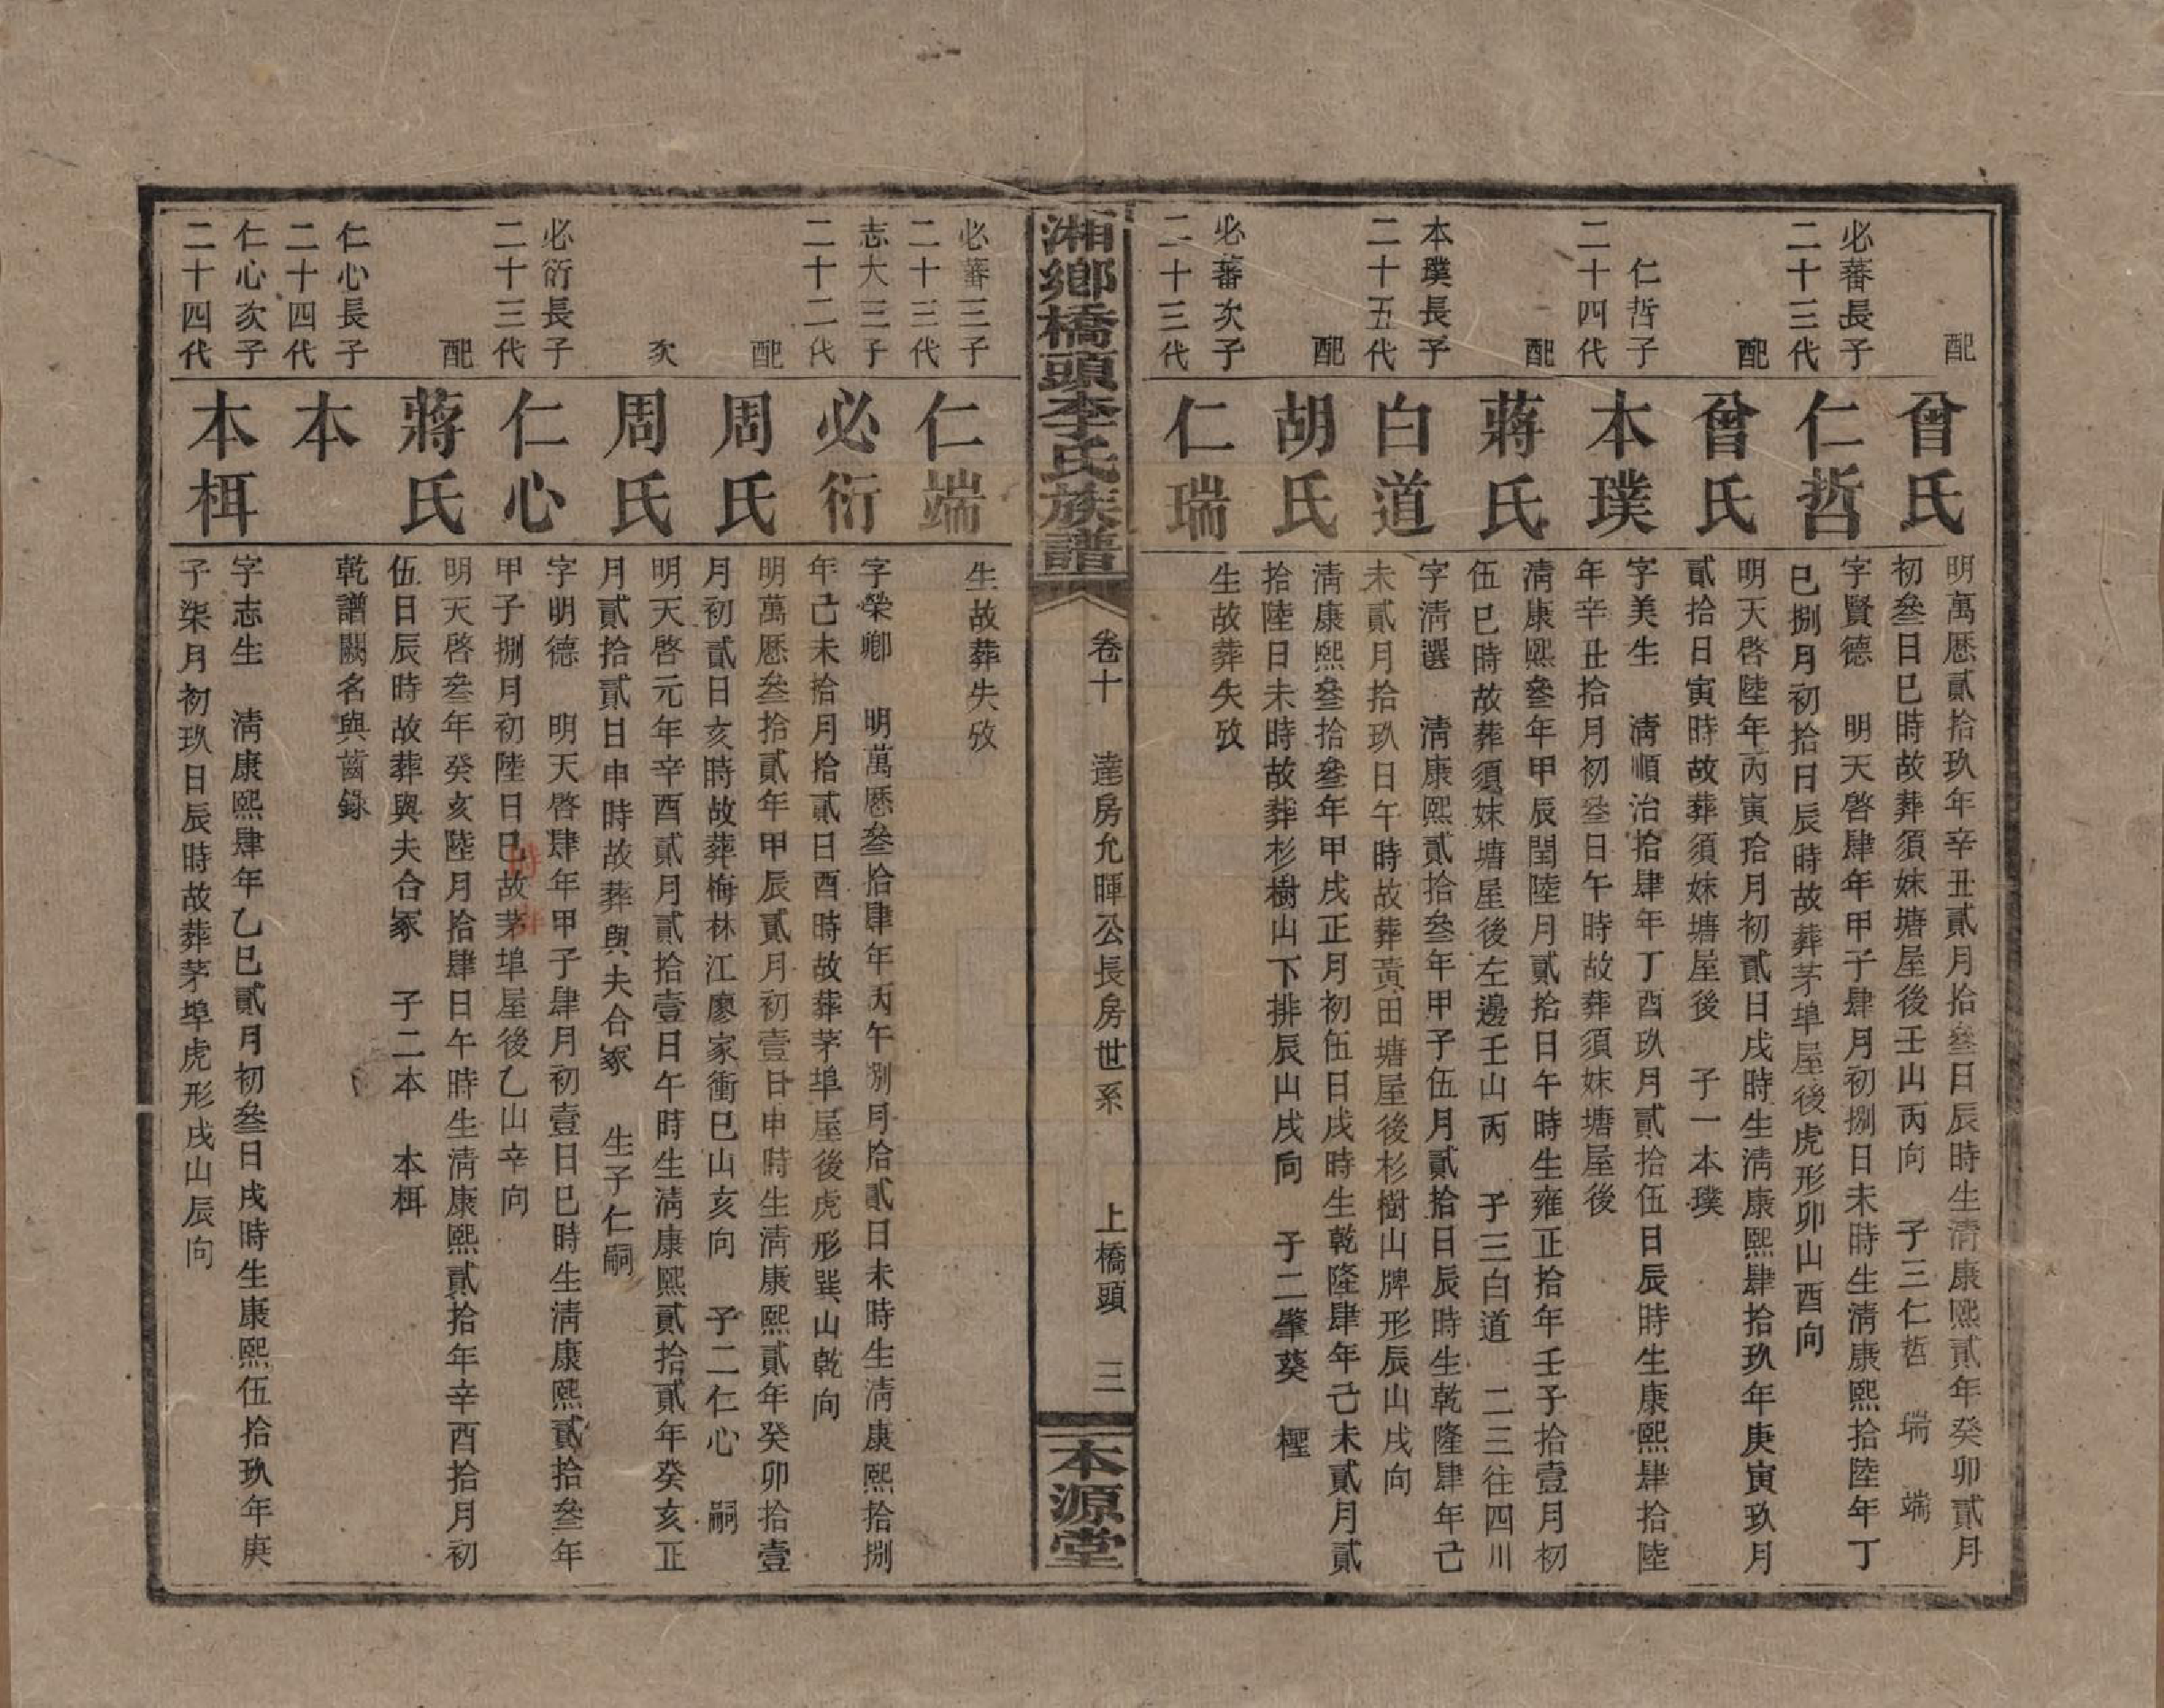 配
曾氏
明萬厯貳拾玖年辛丑貳月拾叁日辰時生清康熙貳年癸卯貳月
初叁日巳時故葬須妹塘屋後壬山丙向　子三仁哲　瑞　端
必蕃長子
二十三代
仁哲
字賢德　明天啓肆年甲子肆月初捌日未時生清康熙拾陸年丁
巳捌月初拾日辰時故葬茅埠屋後虎形卯山酉向
配
曾氏
明天啓陸年丙寅拾月初貳日戌時生清康熙肆拾玖年庚寅玖月
貳拾日寅時故葬須妹塘屋後　子一本璞
仁哲子
二十四代
本璞
字美生　清順治拾肆年丁酉玖月貳拾伍日辰時生康熙肆拾陸
年辛丑拾月初叁日午時故葬須妹塘屋後
配
蔣氏
清康熙叁年甲辰閏陸月貳拾日午時生雍正拾年壬子拾壹月初
伍巳時故葬須妹塘屋後左邊壬山丙　子三白道　二三往四川
本璞長子
二十五代
白道
字清選　清康熙貳拾叁年甲子伍月貳拾日辰時生乾隆肆年己
未貳月拾玖日午時故葬黃田塘屋後杉樹山牌形辰山戌向
配
胡氏
清康熙叁拾叁年甲戌正月初伍日戌時生乾隆肆年己未貳月貳
拾陸日未時故葬杉樹山下排辰山戌向　子二肇葵　檉
必蕃次子
二十三代
仁瑞
生故葬失攷
湘鄉橋頭李氏族譜
卷十　達房允暉公長房世系　上橋頭　三
本源堂
必蕃三子
二十三代
仁端
生故葬失攷
志大三子
二十二代
必衍
字榮卿　明萬厯叁拾肆年丙午捌月拾貳日未時生清康熙拾捌
年己未拾月拾貳日酉時故葬茅埠屋後虎形巽山乾向
配
周氏
明萬厯叁拾貳年甲辰貳月初壹日申時生清康熙貳年癸卯拾壹
月初貳日亥時故葬梅林江廖家衝巳山亥向　子二仁心　嗣
次
周氏
明天啓元年辛酉貳月貳拾壹日午時生清康熙貳拾貳年癸亥正
月貳拾貳日申時故葬與夫合冢　生子仁嗣
必衍長子
二十三代
仁心
字明德　明天啓肆年甲子肆月初壹日巳時生清康熙貳拾叁年
甲子捌月初陸日巳故茅埠屋後乙山辛向
時葬
配
蔣氏
明天啓叁年癸亥陸月拾肆日午時生清康熙貳拾年辛酉拾月初
伍日辰時故葬與夫合冢　子二本　本栮
仁心長子
二十四代
本
乾譜闕名與齒錄
仁心次子
二十四代
本栮
字志生　清康熙肆年乙巳貳月初叁日戌時生康熙伍拾玖年庚
子柒月初玖日辰時故葬茅埠虎形戌山辰向